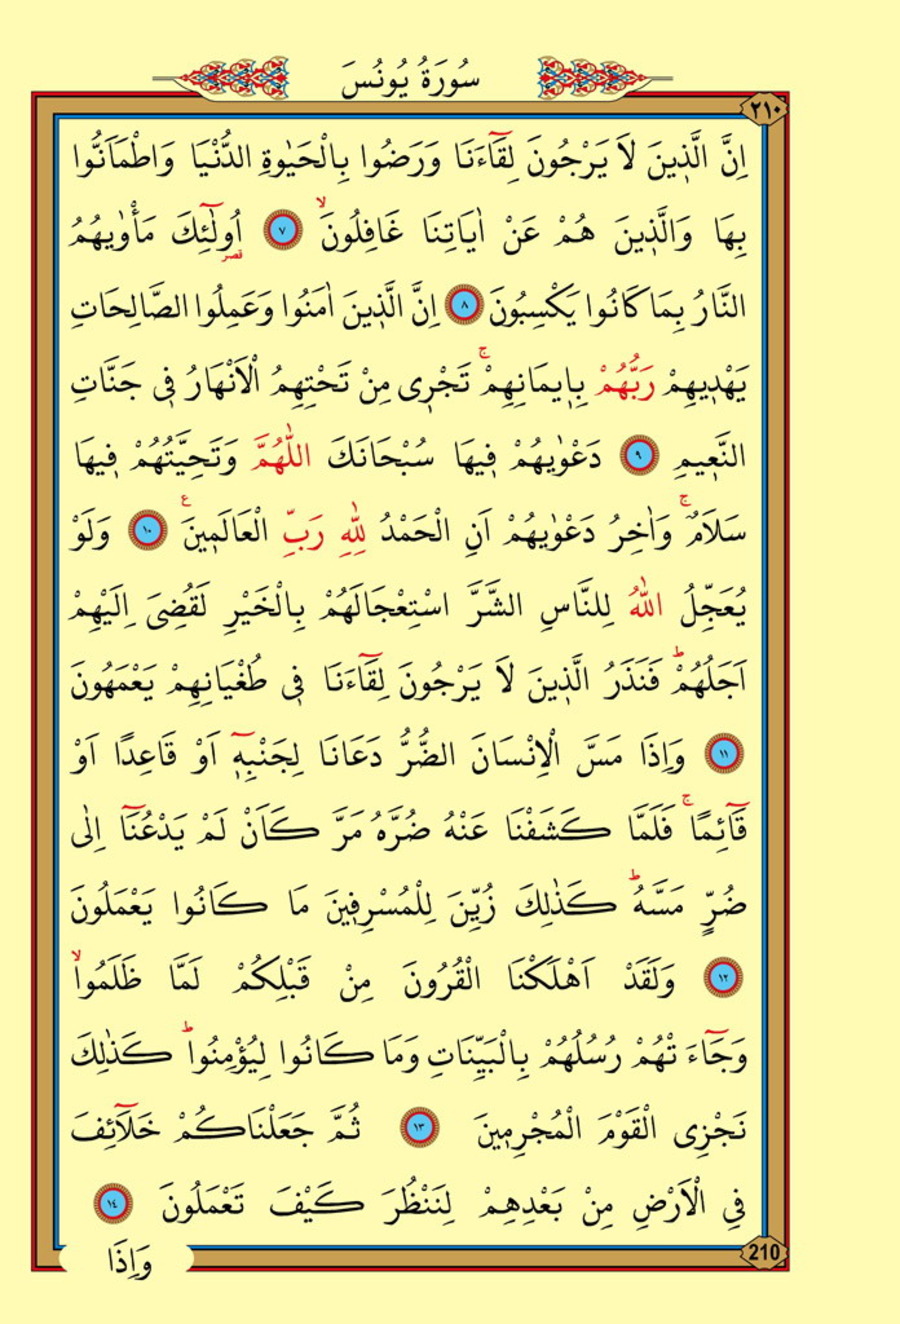 سُورَةُ يُونُسَ
٢١٠
اِنَّ الَّذ۪ينَ لَا يَرْجُونَ لِقَٓاءَنَا وَرَضُوا بِالْحَيٰوةِ الدُّنْيَا وَاطْمَاَنُّوا
بِهَا وَالَّذ۪ينَ هُمْ عَنْ اٰيَاتِنَا غَافِلُونَۙ ﴿٧﴾ اُو۬لٰٓئِكَ مَأْوٰيهُمُ
قصر
النَّارُ بِمَا كَانُوا يَكْسِبُونَ ﴿٨﴾ اِنَّ الَّذ۪ينَ اٰمَنُوا وَعَمِلُوا الصَّالِحَاتِ
يَهْد۪يهِمْ رَبُّهُمْ بِا۪يمَانِهِمْۚ تَجْر۪ي مِنْ تَحْتِهِمُ الْاَنْهَارُ ف۪ي جَنَّاتِ
النَّع۪يمِ ﴿٩﴾ دَعْوٰيهُمْ ف۪يهَا سُبْحَانَكَ اللّٰهُمَّ وَتَحِيَّتُهُمْ ف۪يهَا
سَلَامٌۚ وَاٰخِرُ دَعْوٰيهُمْ اَنِ الْحَمْدُ لِلّٰهِ رَبِّ الْعَالَم۪ينَ ع ﴿١٠﴾ وَلَوْ
يُعَجِّلُ اللّٰهُ لِلنَّاسِ الشَّرَّ اسْتِعْجَالَهُمْ بِالْخَيْرِ لَقُضِيَ اِلَيْهِمْ
اَجَلُهُمْۜ فَنَذَرُ الَّذ۪ينَ لَا يَرْجُونَ لِقَٓاءَنَا ف۪ي طُغْيَانِهِمْ يَعْمَهُونَ
﴿١١﴾ وَاِذَا مَسَّ الْاِنْسَانَ الضُّرُّ دَعَانَا لِجَنْبِه۪ٓ اَوْ قَاعِدًا اَوْ
قَٓائِمًاۚ فَلَمَّا كَشَفْنَا عَنْهُ ضُرَّهُ مَرَّ كَاَنْ لَمْ يَدْعُنَٓا اِلٰى
ضُرٍّ مَسَّهُۜ كَذٰلِكَ زُيِّنَ لِلْمُسْرِف۪ينَ مَا كَانُوا يَعْمَلُونَ
﴿١٢﴾ وَلَقَدْ اَهْلَكْنَا الْقُرُونَ مِنْ قَبْلِكُمْ لَمَّا ظَلَمُواۙ
وَجَٓاءَتْهُمْ رُسُلُهُمْ بِالْبَيِّنَاتِ وَمَا كَانُوا لِيُؤْمِنُواۜ كَذٰلِكَ
نَجْزِي الْقَوْمَ الْمُجْرِم۪ينَ ﴿١٣﴾ ثُمَّ جَعَلْنَاكُمْ خَلَٓائِفَ
فِي الْاَرْضِ مِنْ بَعْدِهِمْ لِنَنْظُرَ كَيْفَ تَعْمَلُونَ ﴿١٤﴾
210
وَاِذَا